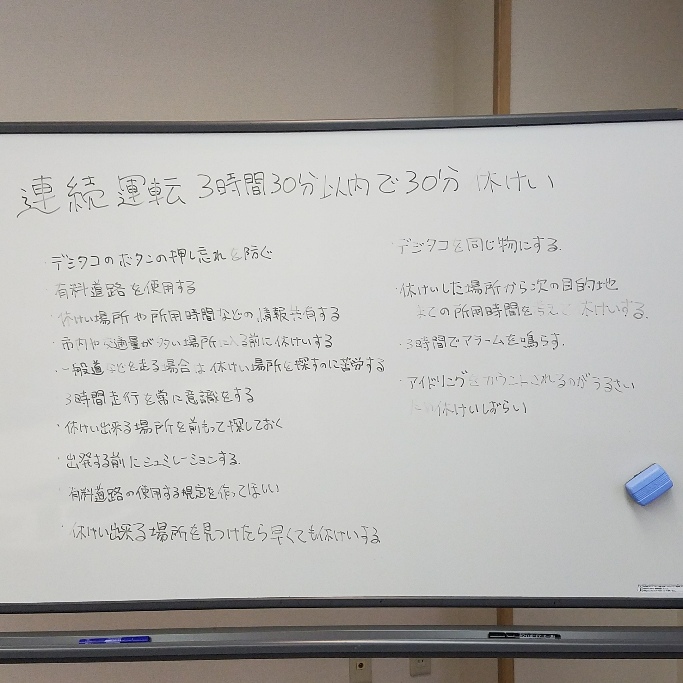 連続運転 3時間30分以内で30分 休けい
・デジタコのボタンの押し忘れを防ぐ
有料道路を使用する
・休けい場所や所用時間などの情報共有する
・市内や交通量が多い場所に入る前に休けいする
・一般道などを走る場合は休けい場所を探すのに苦労する
3時間走行を常に意識をする
・休けい出来る場所を前もって探しておく
・出発する前にシュミレーションする.
・有料道路の使用する規定を作ってほしい
・休けい出来る場所を見つけたら早くても休けいする
・デジタコを同じ物にする.
・休けいした場所から次の目的地
までの所用時間を考えて休けいする.
・3時間でアラームを鳴らす.
・アイドリングをカウントされるのがうるさい
休けいしずらい